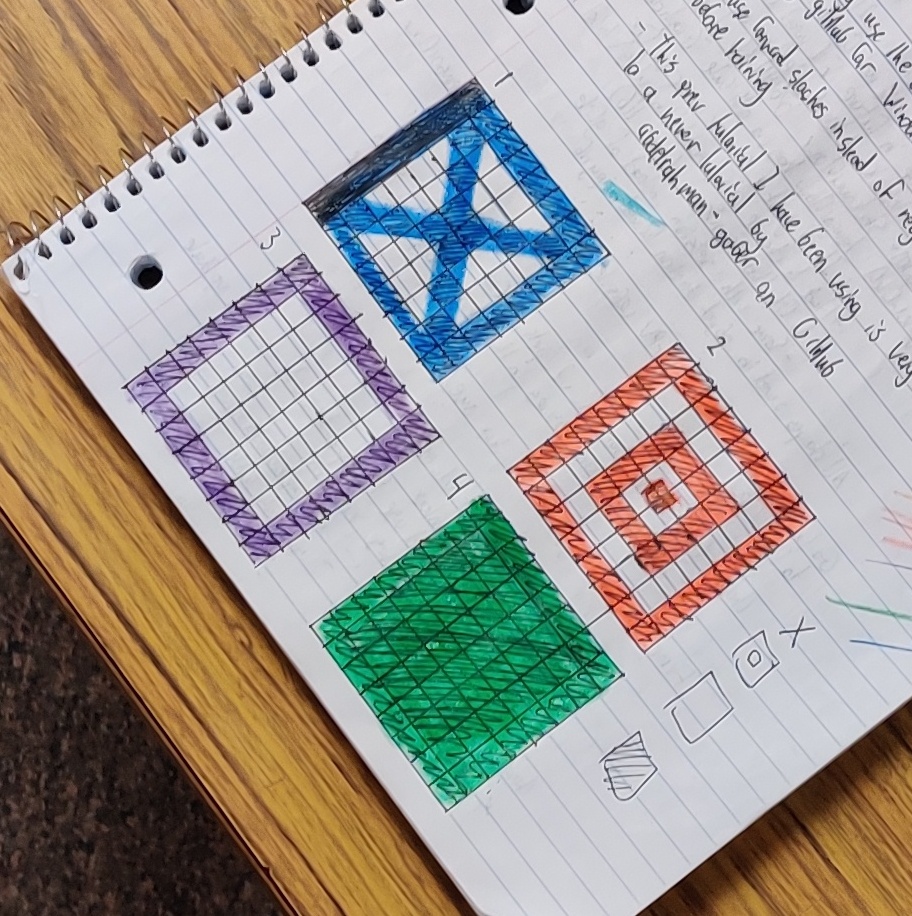 use the
github
use forward slashes instead of
before training
- This prev tutorial I have been using is very
to a newer tutorial by
abdelrahman-gaber on GitHub
1
2
3
4